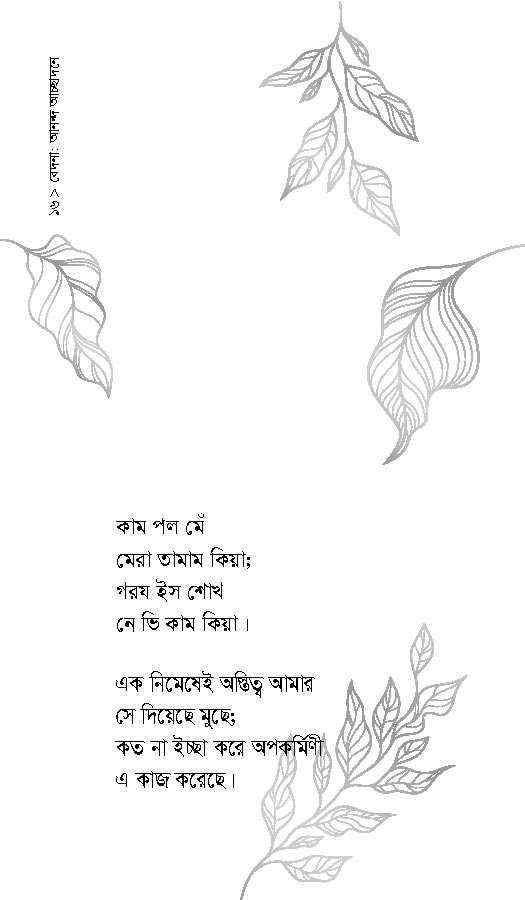 ১৬> বেদনা: আনন্দ আচ্ছাদনে
কাম পল মেঁ
মেরা তামাম কিয়া;
গরয ইস শোখ
নে ভি কাম কিয়া।
এক নিমেষেই অস্তিত্ব আমার
সে দিয়েছে মুছে;
কত না ইচ্ছা করে অপকর্মিণী
এ কাজ করেছে।